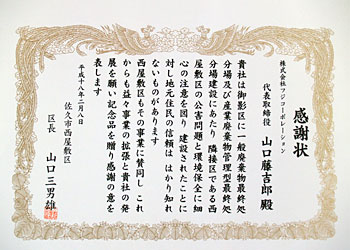 感謝状
株式会社フジコーポレーション
代表取締役 山口藤吉郎殿
貴社は御影区に一般廃棄物最終処
分場及び産業廃棄物管理型最終処
分場建設にあたり 隣接区である西
屋敷区の公害問題と環境保全に細
心の注意を図り 建設されたことに
対し地元住民の信頼は はかり知れ
ないものがあります
西屋敷区もその事業に賛同し これ
からも益々事業の拡張と貴社の発
展を願い記念品を贈り感謝の意を
表します
平成十八年二月八日
佐久市西屋敷区
区長 山口三男雄